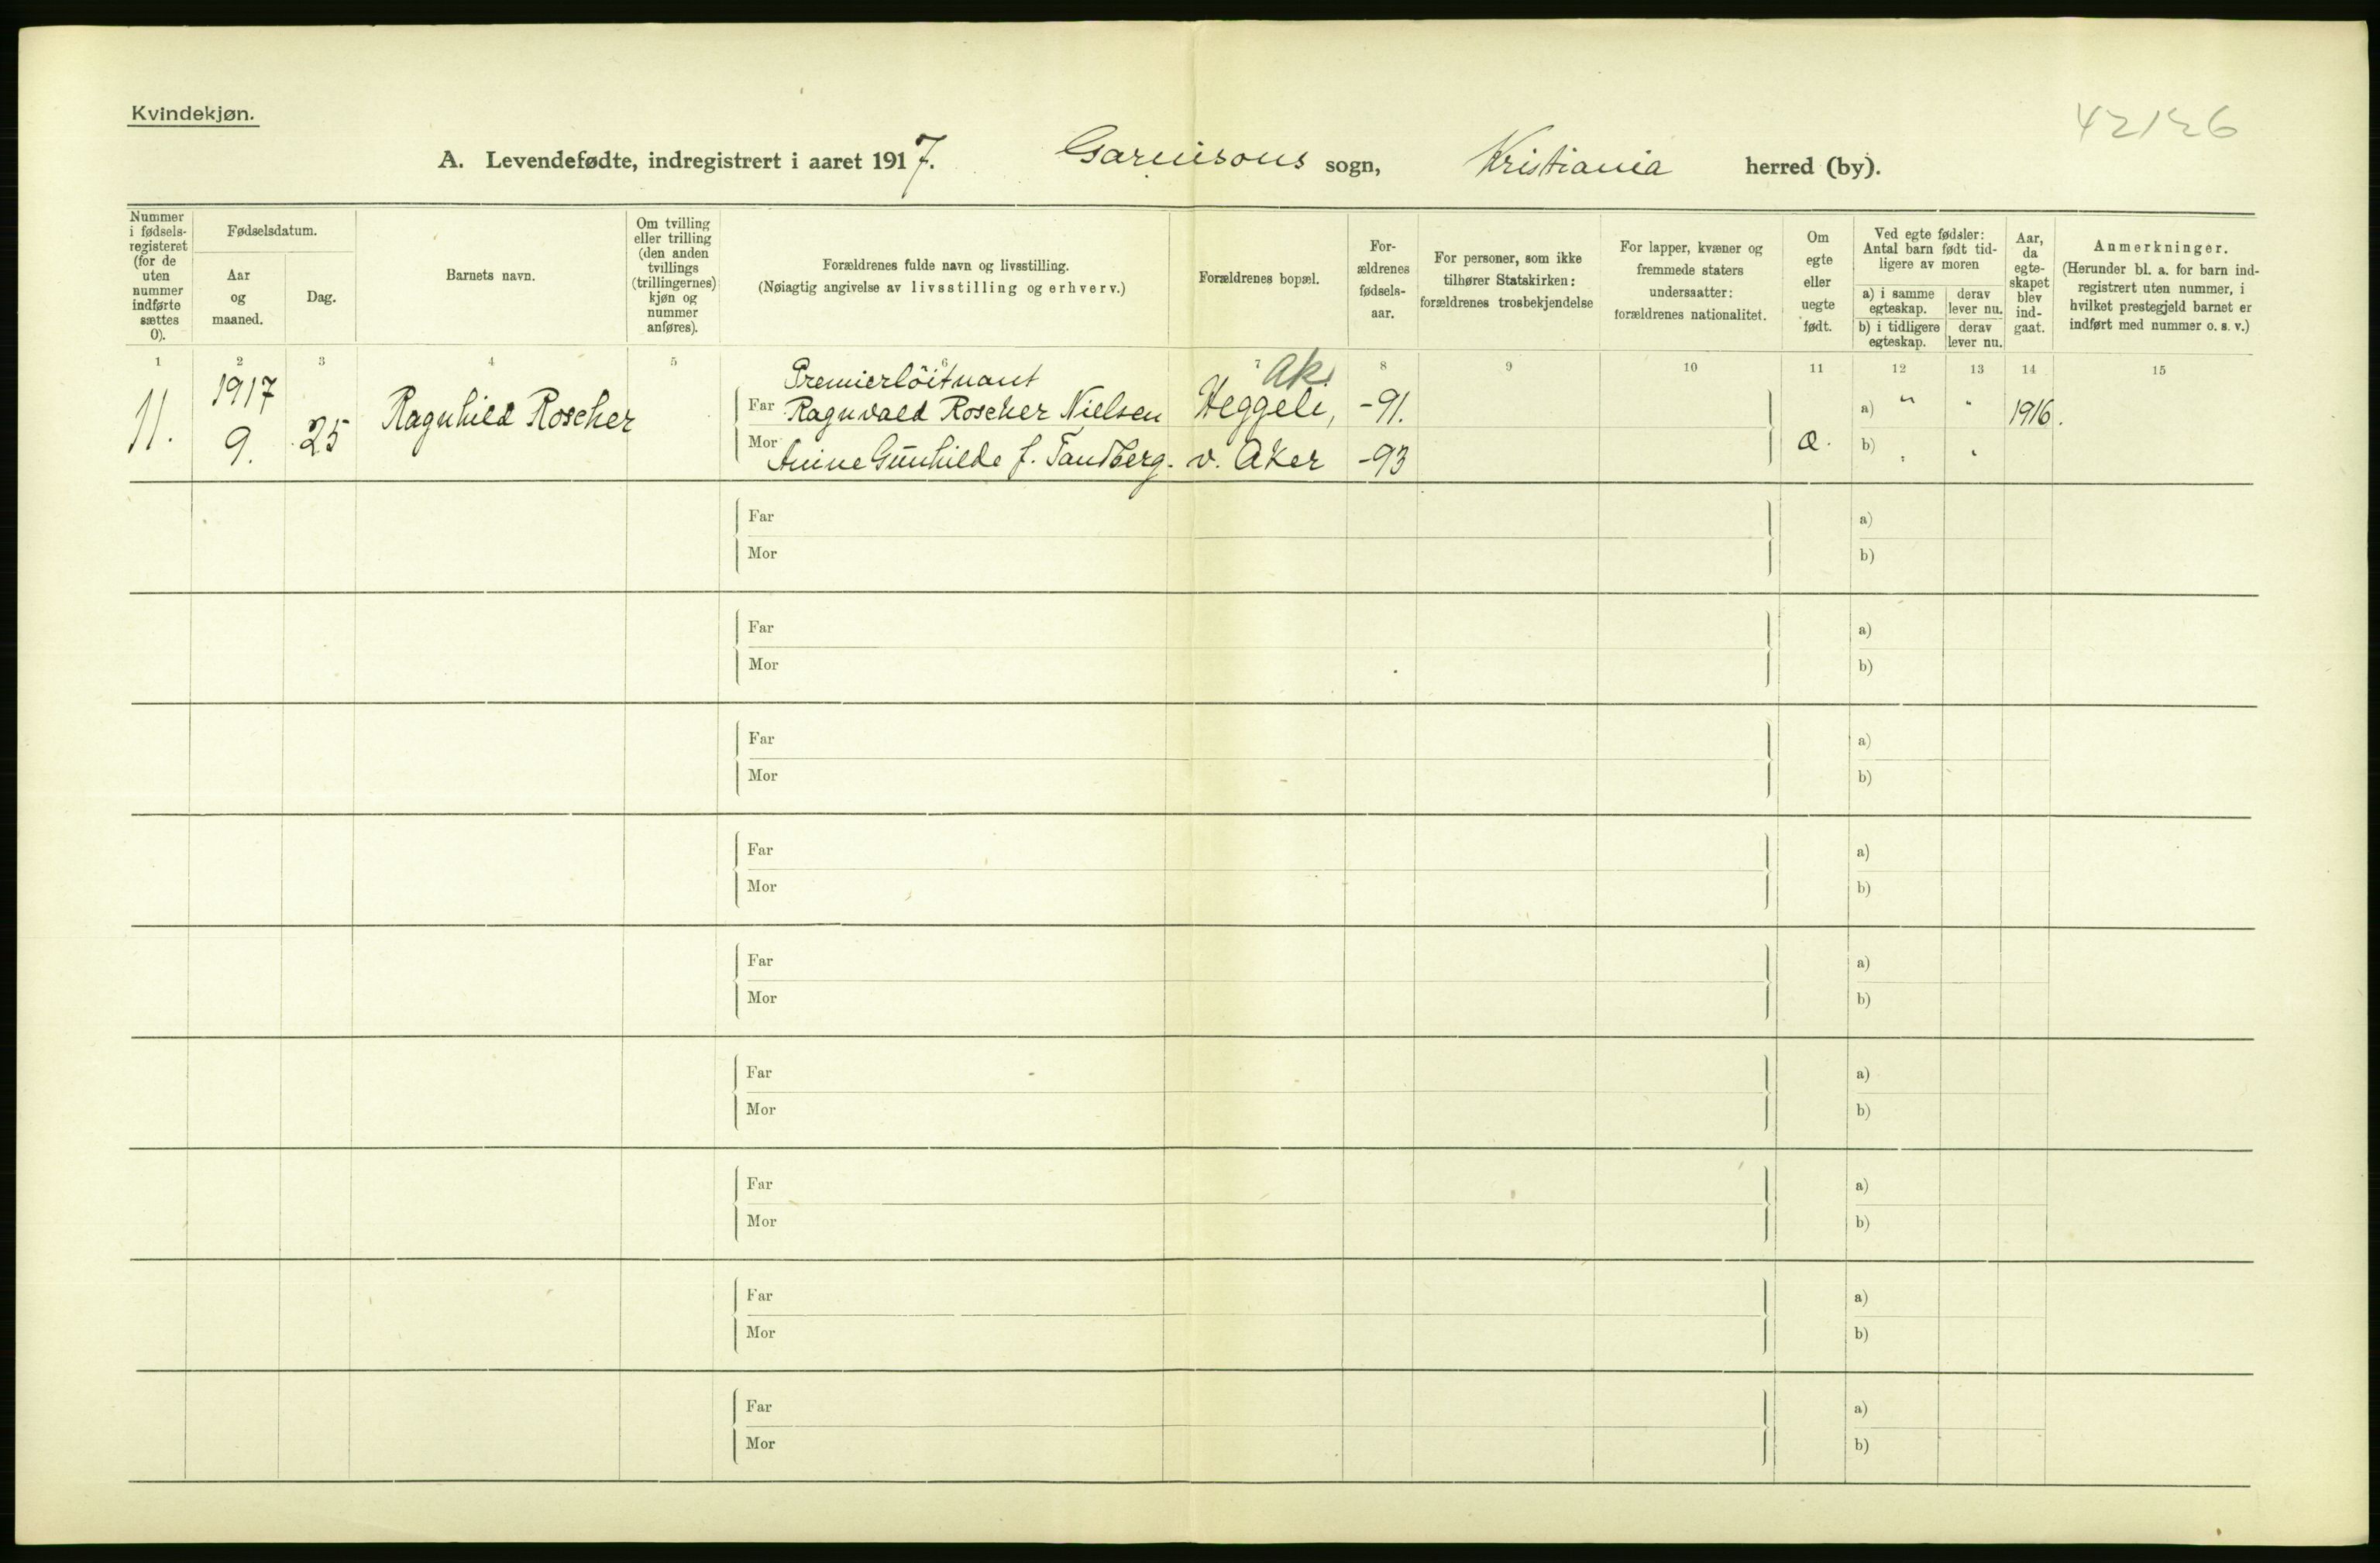 Kvindekjøn.
42126
A. Levendefødte, indregistrert i aaret 1917. Garnisons sogn, Kristiania herred (by).
Nummer i fødsels-registeret (for de uten nummer indførte sættes 0).
Fødselsdatum.
Aar og maaned.
Dag.
Barnets navn.
Om tvilling eller trilling (den anden tvillings (trillingernes) kjøn og nummer anføres).
Forældrenes fulde navn og livsstilling.
(Nøiagtig angivelse av livsstilling og erhverv.)
Forældrenes bopæl.
For-ældrenes fødsels-aar.
For personer, som ikke tilhører Statskirken: forældrenes trosbekjendelse
For lapper, kvæner og fremmede staters undersaatter: forældrenes nationalitet.
Om egte eller uegte født.
Ved egte fødsler: Antal barn født tid-ligere av moren
a) i samme egteskap.
derav lever nu.
b) i tidligere egteskap.
derav lever nu.
Aar, da egte-skapet blev ind-gaat.
Anmerkninger.
(Herunder bl. a. for barn ind-registrert uten nummer, i hvilket prestegjeld barnet er indført med nummer o. s. v.)
1 2 3 4 5 6 7 8 9 10 11 12 13 14 15
Premierlöitnant Ak.
11. 1917 9. 25 Ragnhild Roscher Far Ragnvald Roscher Nielsen Heggeli, -91. a) " " 1916.
Mor Anine Gunhilde f. Tandberg. v. Aker -93 e. b) " "
Far a)
Mor b)
Far a)
Mor b)
Far a)
Mor b)
Far a)
Mor b)
Far a)
Mor b)
Far a)
Mor b)
Far a)
Mor b)
Far a)
Mor b)
Far a)
Mor b)